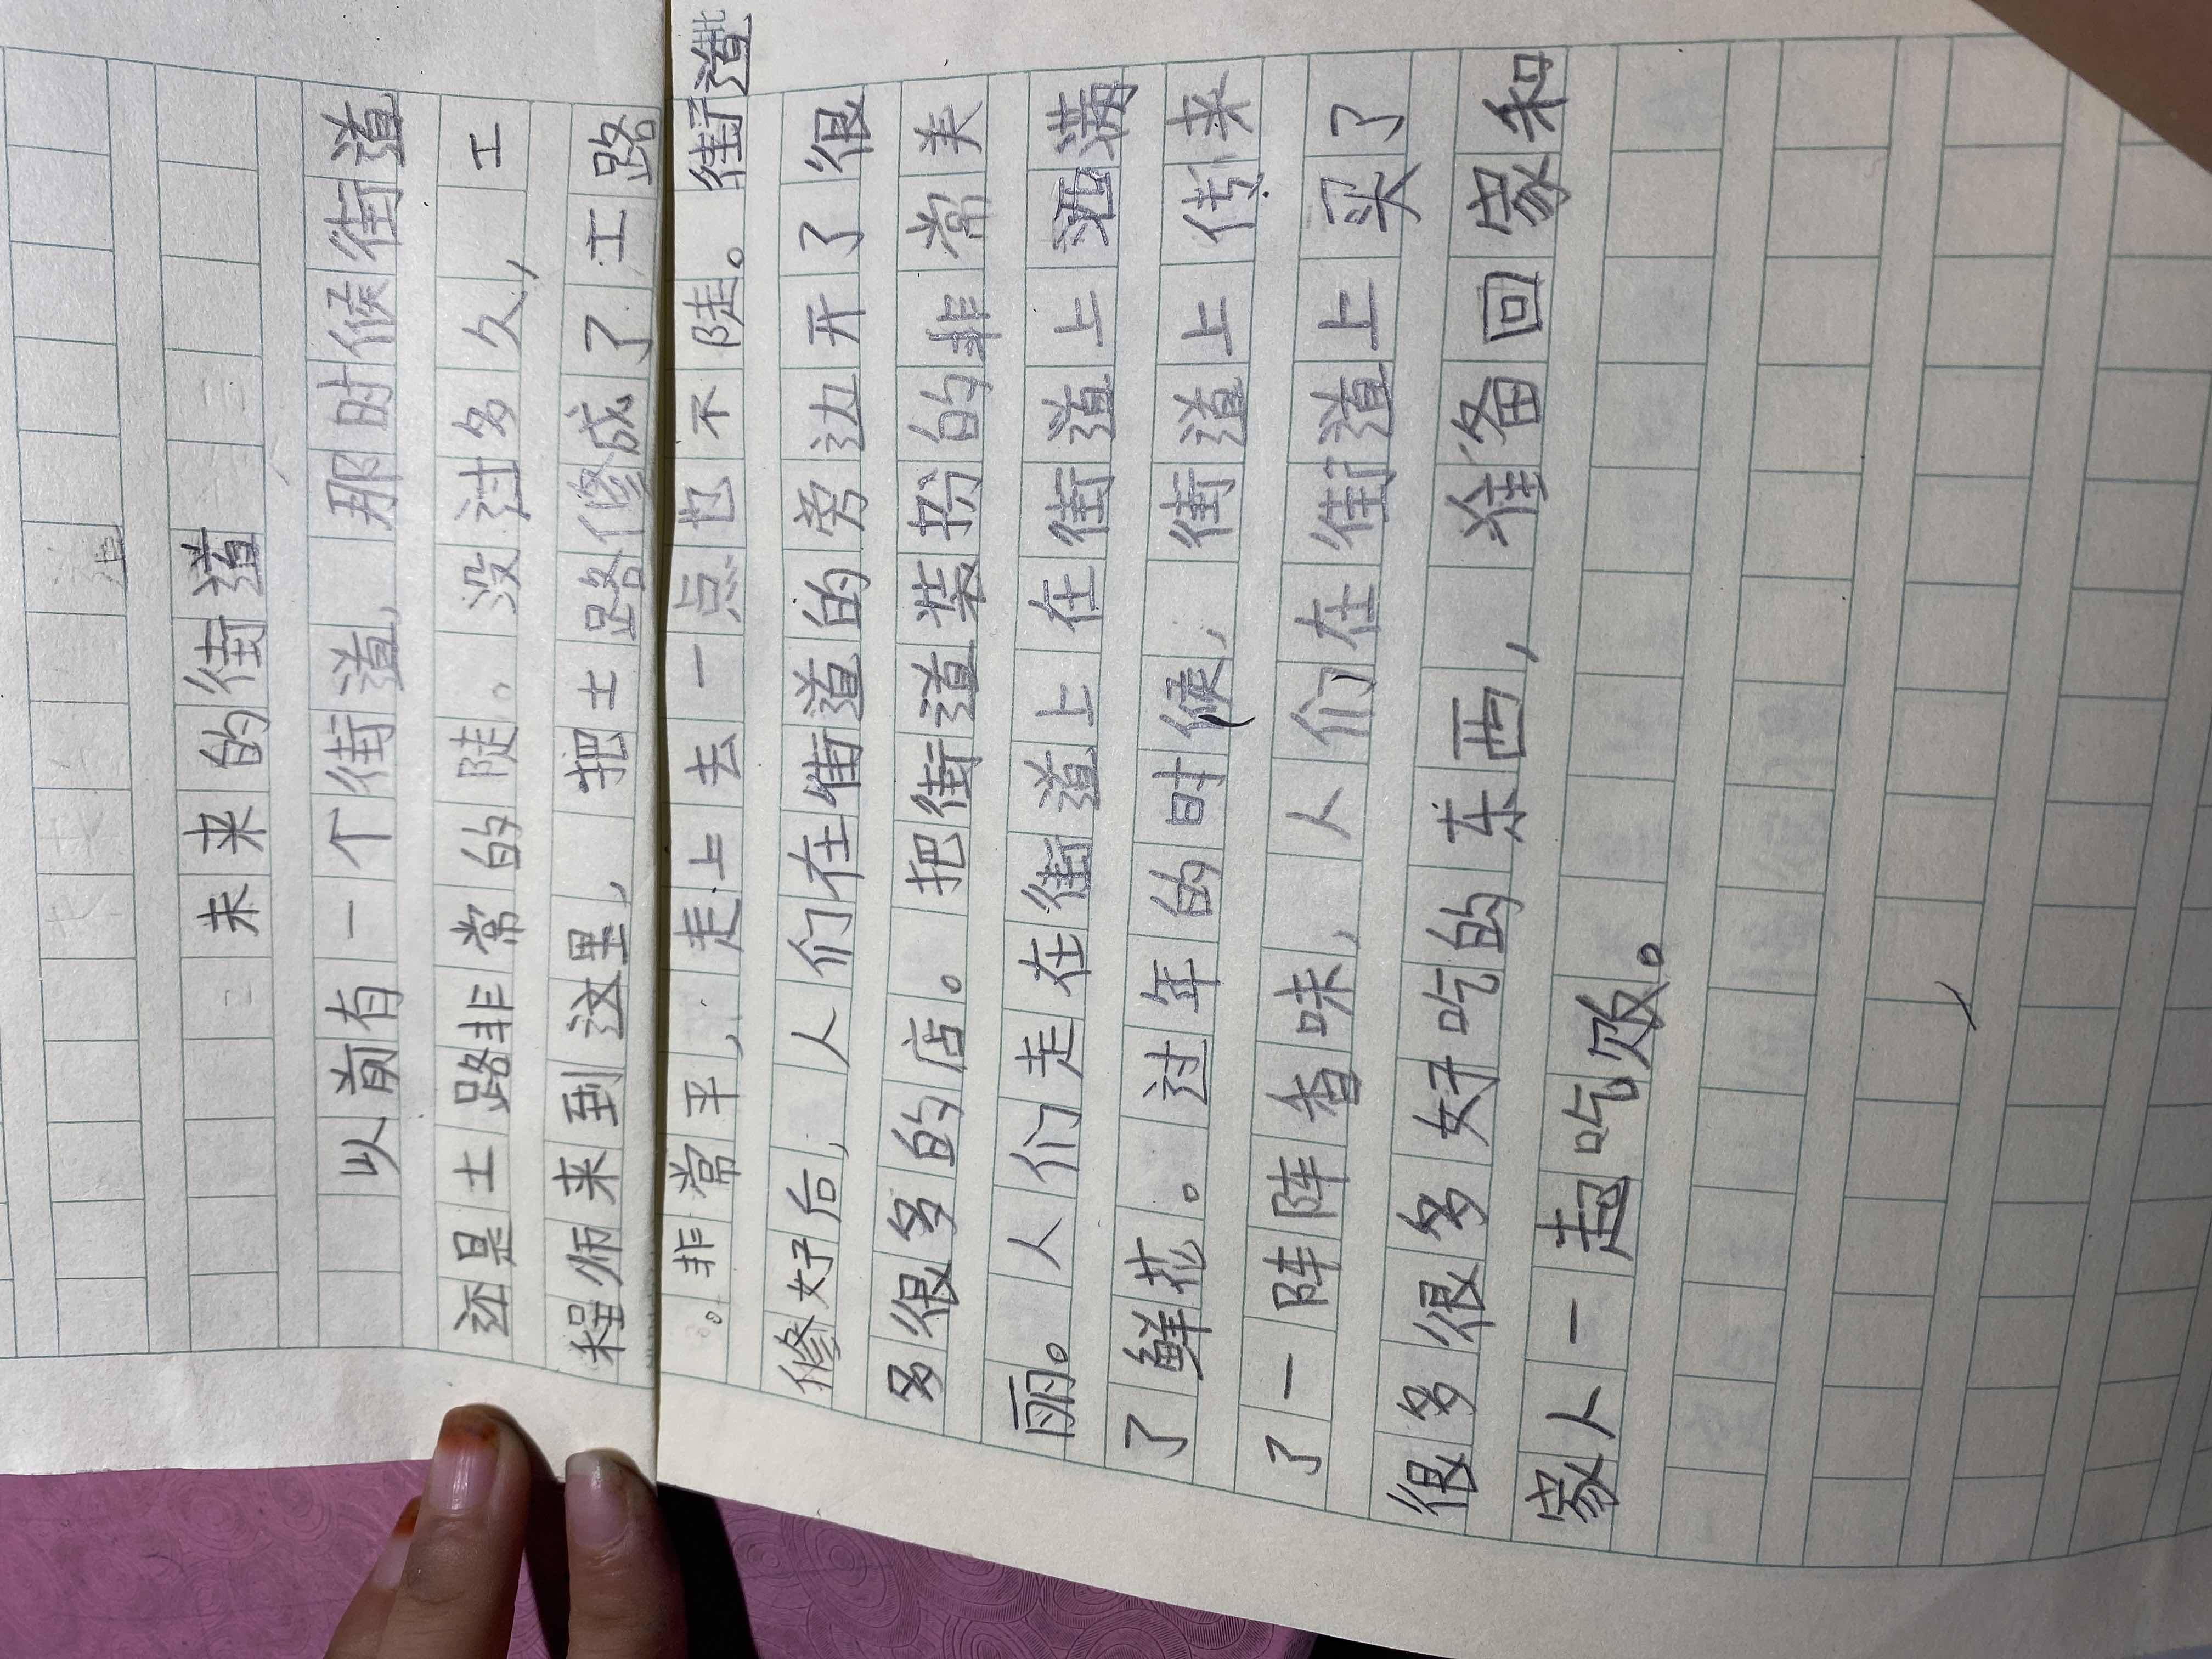 未来的街道
以前有一个街道,那时候街道
还是土路非常的陡。没过多久,工
程师来到这里,把土路修成了工路
。非常平,走上去一点也不陡。街道
修好后,人们在街道的旁边开了很
多很多的店。把街道装扮的非常美
丽。人们走在街道上在街道上洒满
了鲜花。过年的时候,街道上传来
了一阵阵香味,人们在街道上买了
很多很多好吃的东西,准备回家和
家人一起吃饭。